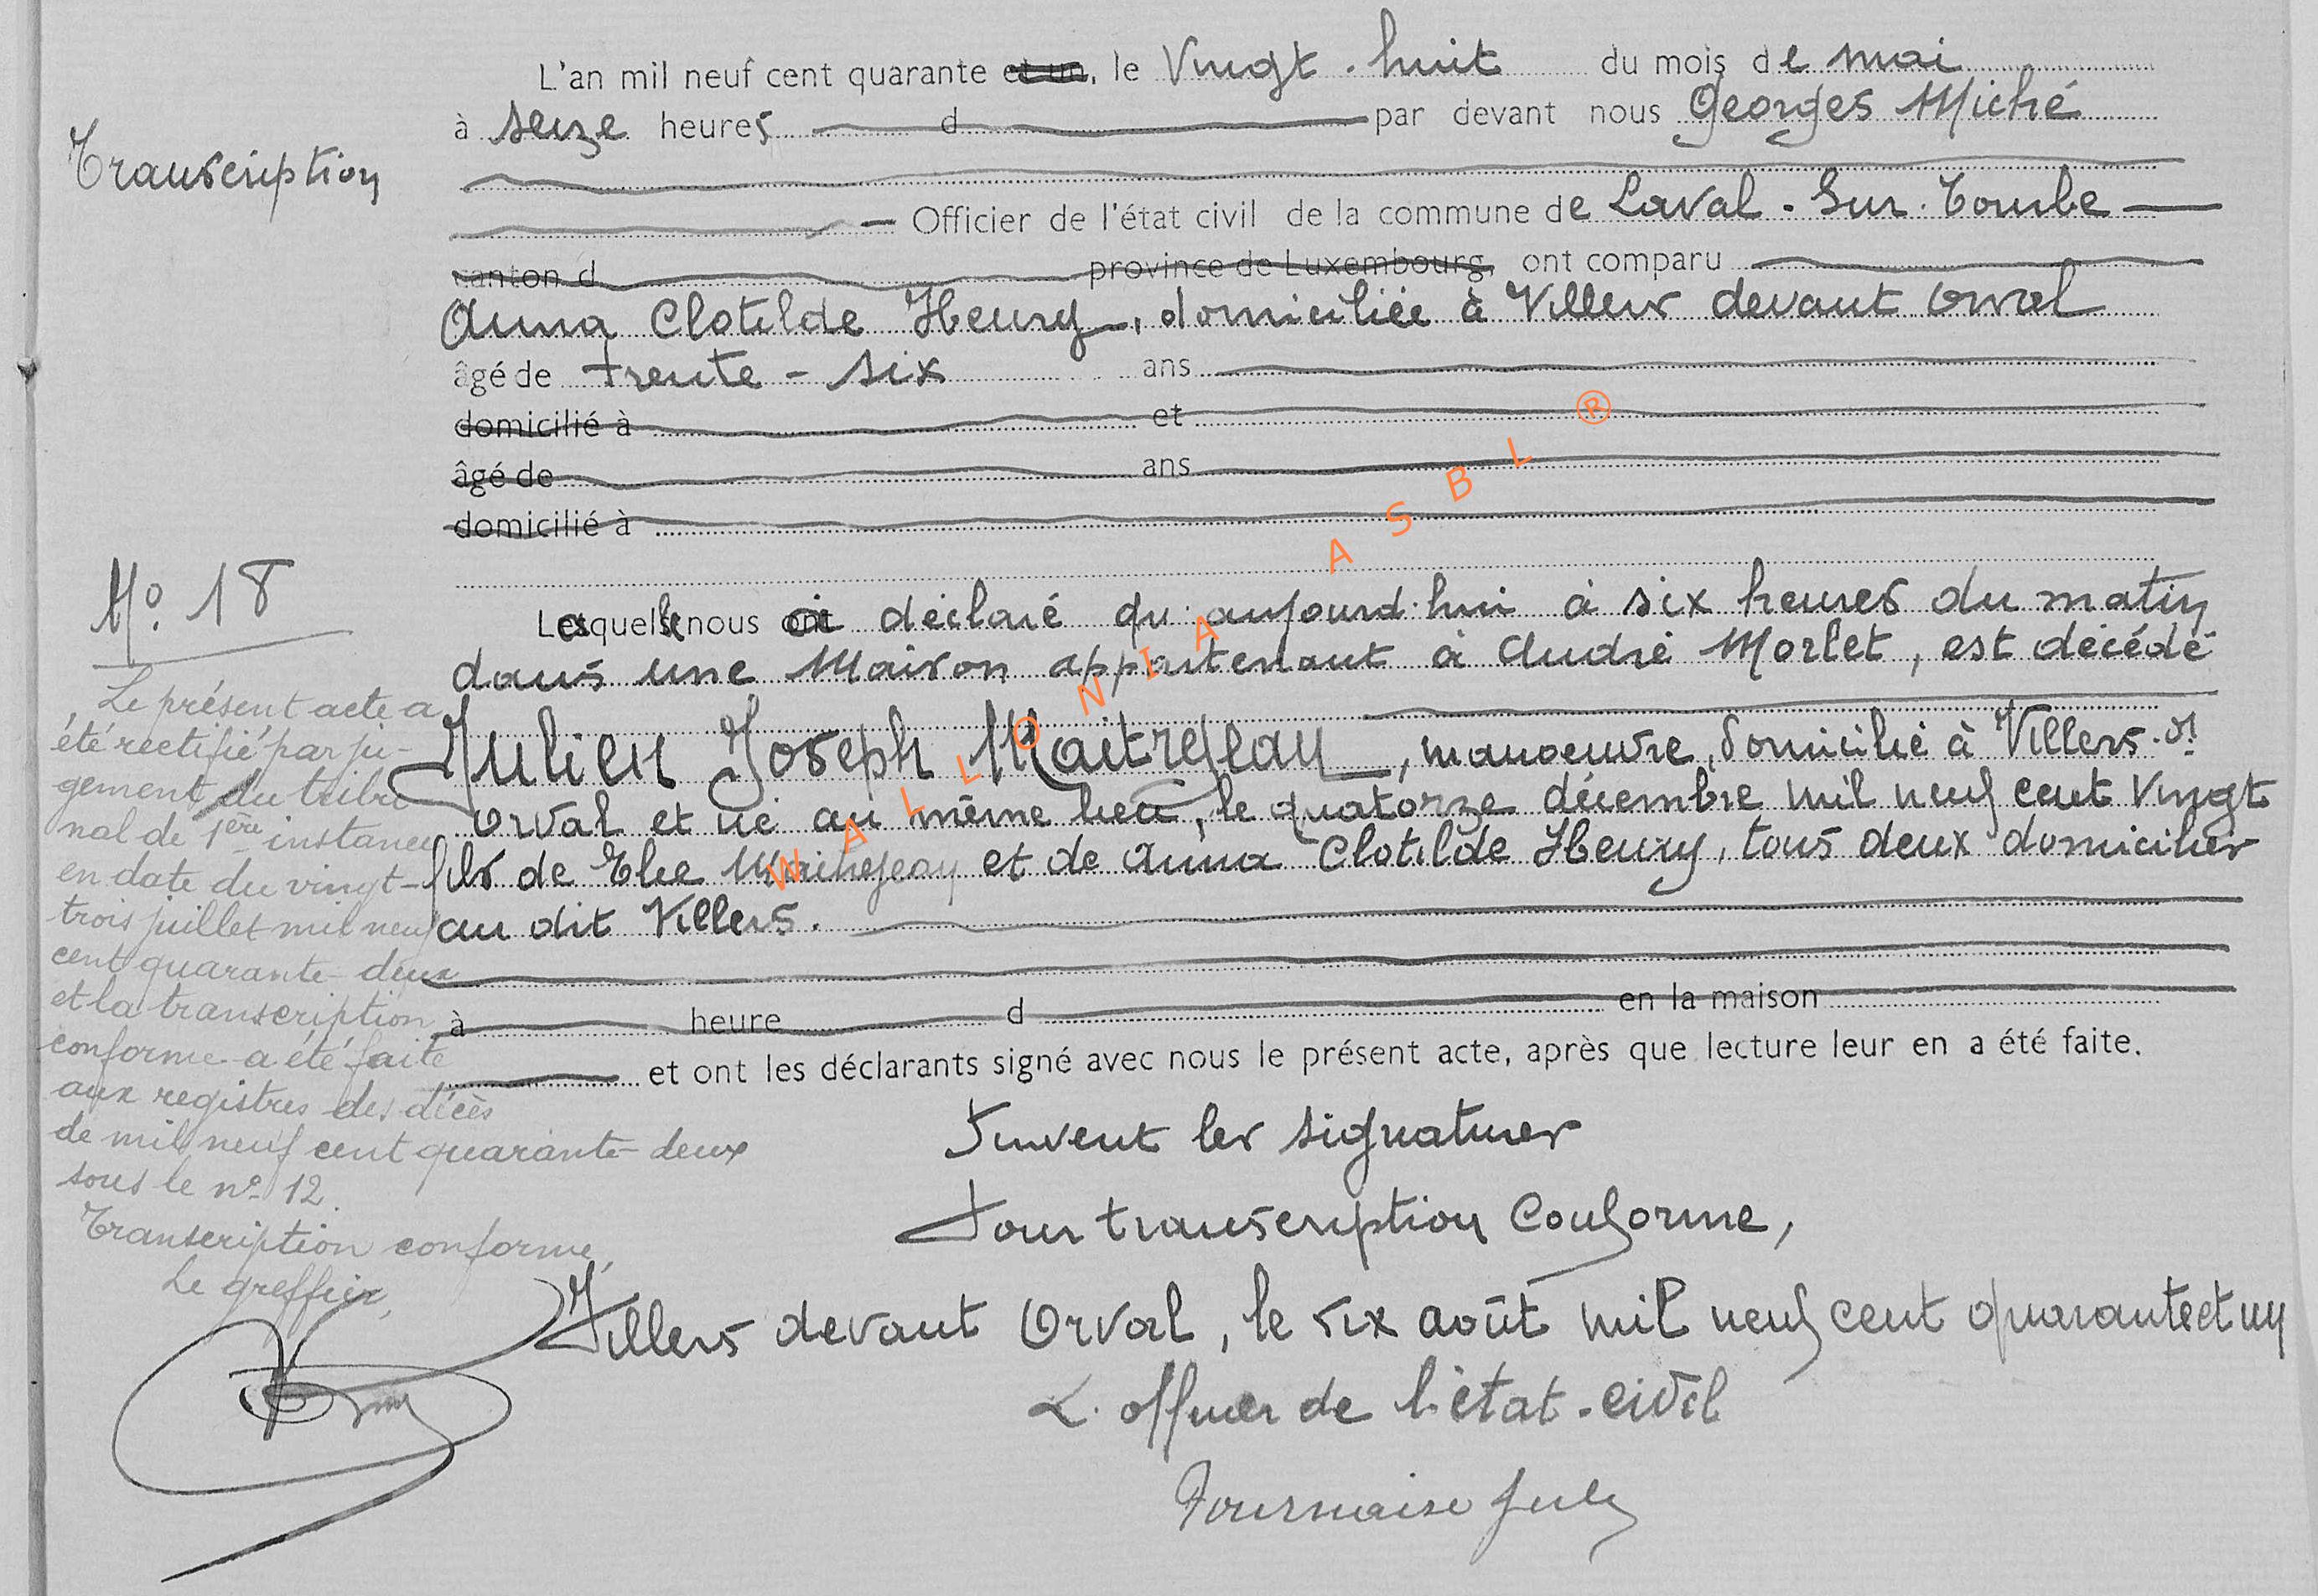 L'an mil neuf cent quarante et un, le Vingt-huit du mois de mai
à seize heures d par devant nous Georges Miché
Transcription
Officier de l'état civil de la commune de Laval-Sur-Tourbe
canton d province de Luxembourg, ont comparu
Anna Clotilde Henry, domiciliée à Villers devant Orval
âgé de trente-six ans
domicilié à et
âgé de ans
domicilié à
No. 18
Lesquelle nous a déclaré qu'aujourd'hui à six heures du matin
dans une Maison appartenant à André Morlet, est décédé
Julien Joseph Maitrejean, manoeuvre, domicilié à Villers-dt
Orval et né au même lieu, le quatorze décembre mil neuf cent vingt
fils de Elie Maitrejean et de Anna Clotilde Henry, tous deux domiciliés
au dit Villers.
à heure d en la maison
et ont les déclarants signé avec nous le présent acte, après que lecture leur en a été faite.
Suivent les signatures
Pour transcription Conforme,
Villers devant Orval, le six août mil neuf cent quarante et un
L'officier de l'état-civil
Fournaise Jules
Le présent acte a
été rectifié par ju-
gement du tribu
nal de 1ère instance
en date du vingt-
trois juillet mil neuf
cent quarante-deux
et la transcription
conforme a été faite
aux registres des décès
de mil neuf cent quarante-deux
sous le n° 12.
Transcription conforme,
Le greffier,
WALLONIA ASBL ®